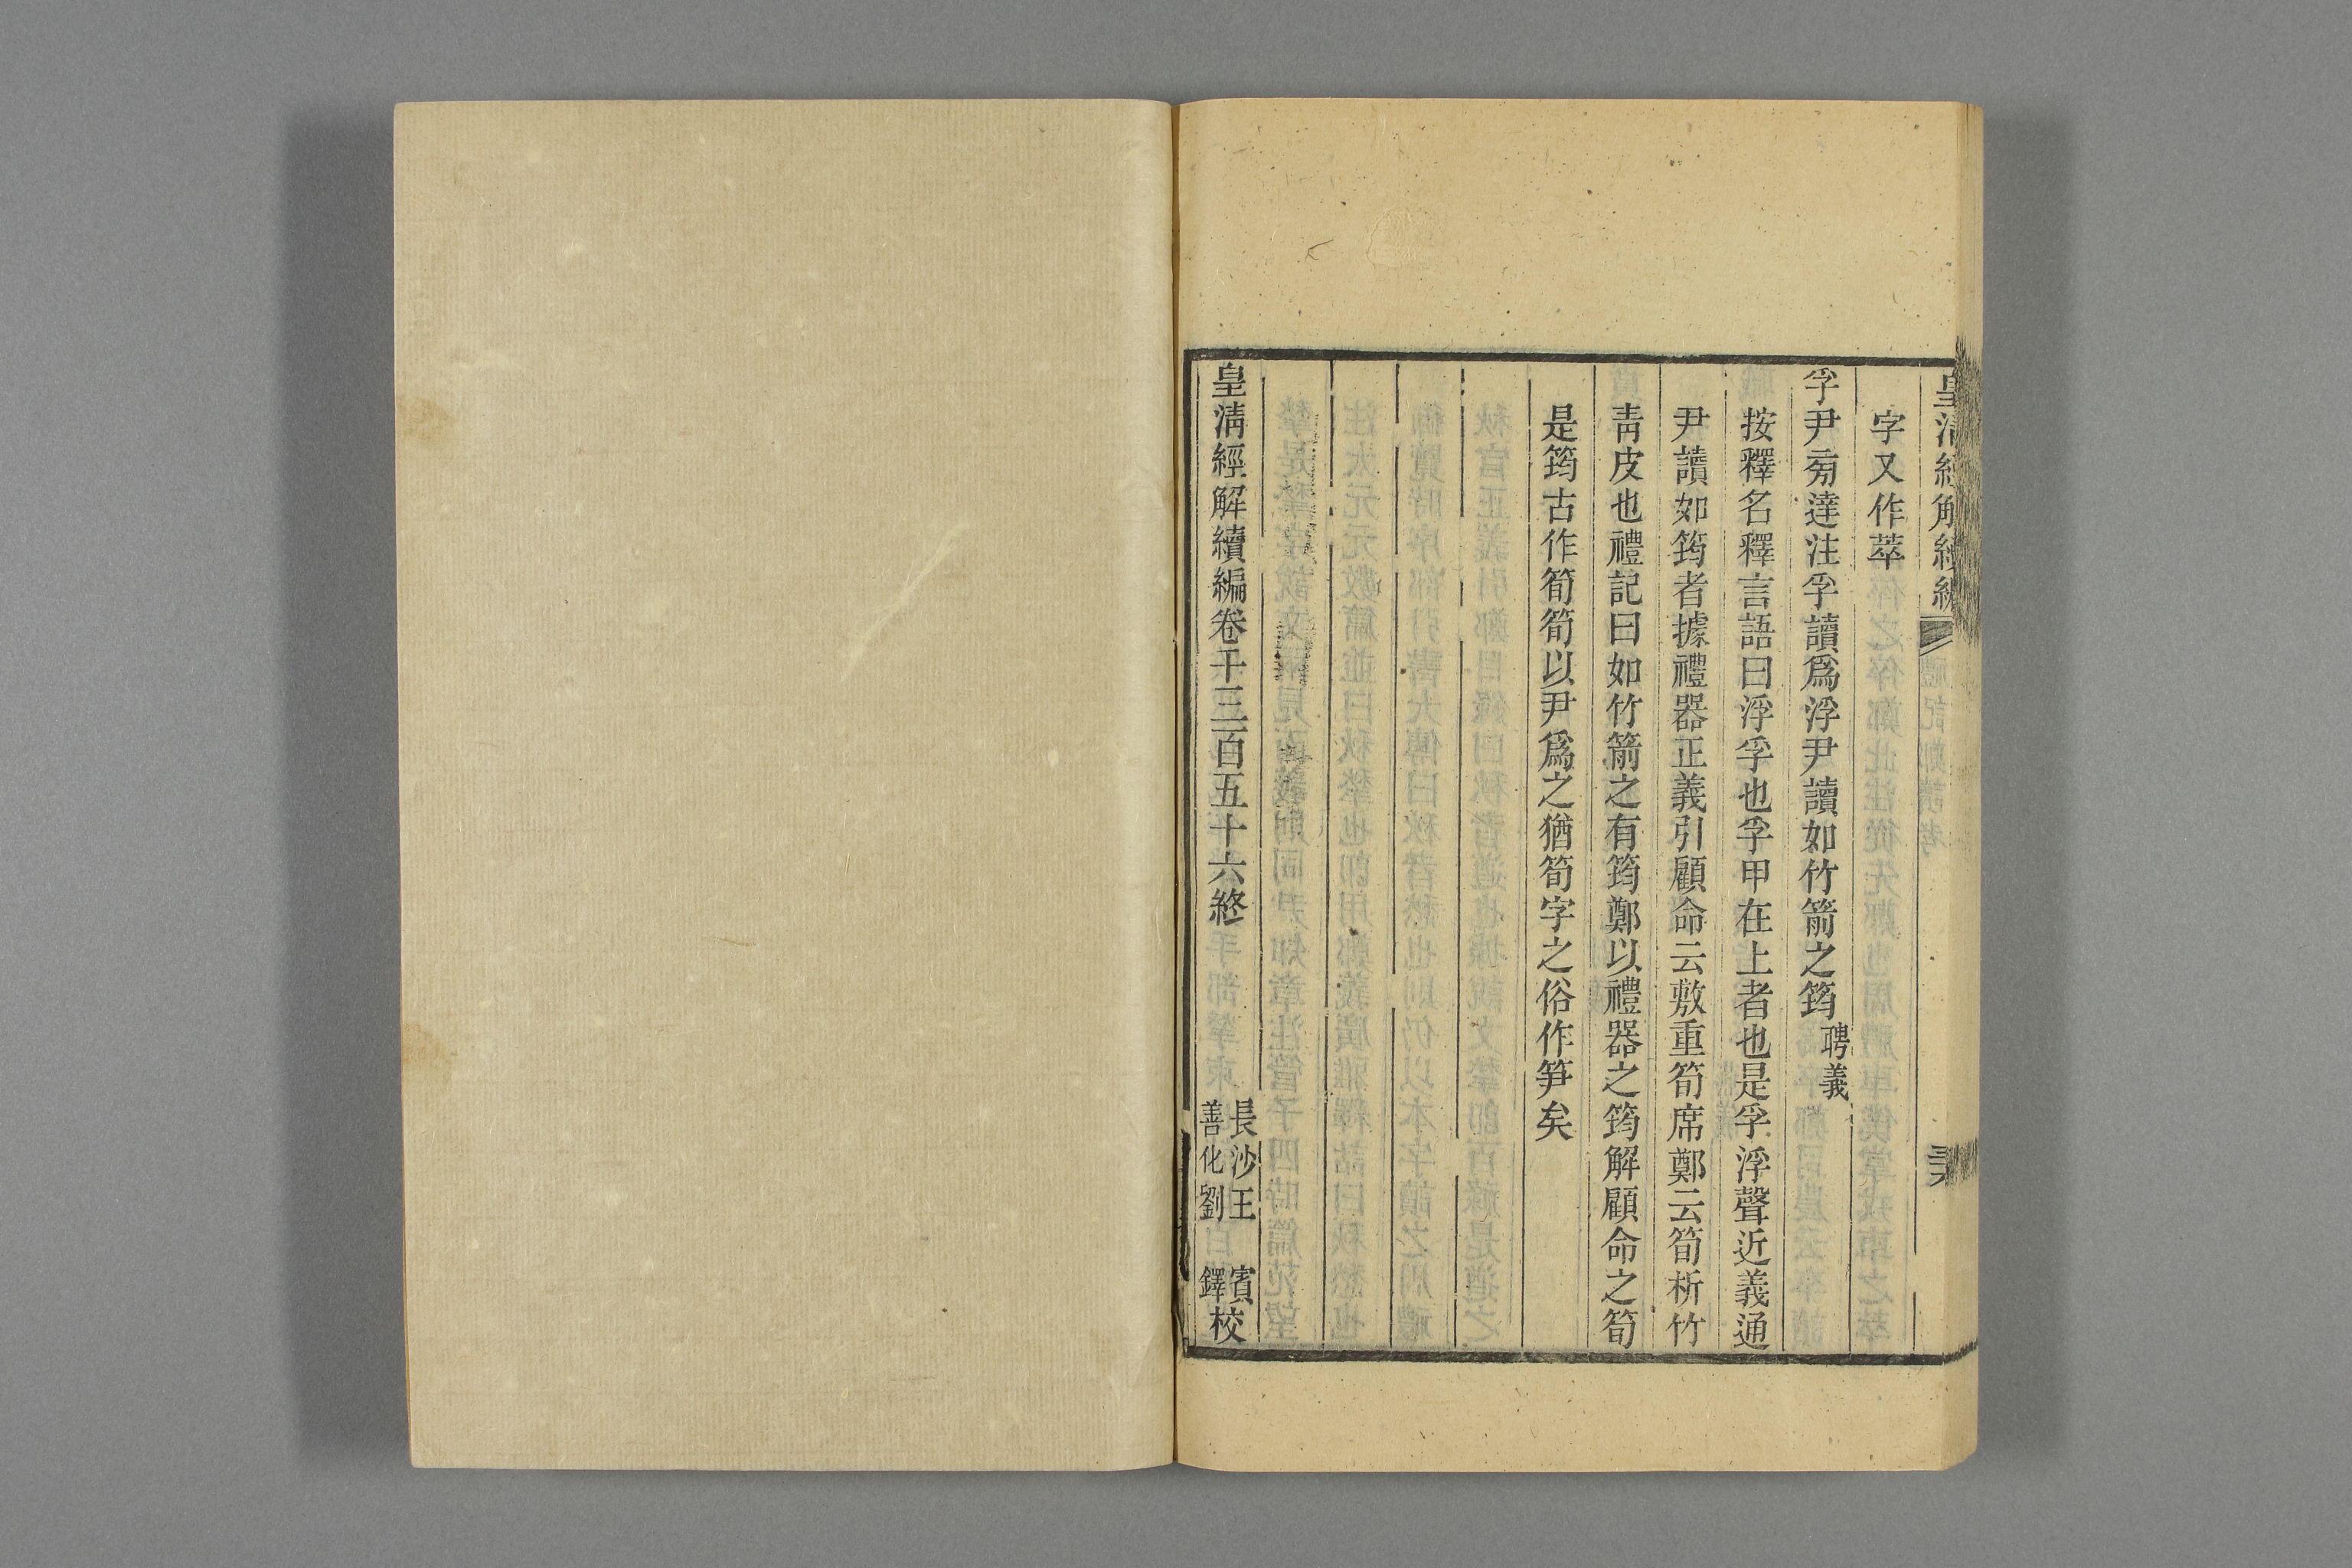 皇清經解續編
字又作萃
孚尹旁達注孚讀爲浮尹讀如竹箭之筠聘義
按釋名釋言語曰浮孚也孚甲在上者也是孚浮聲近義通
尹讀如筠者據禮器正義引顧命云敷重筍席鄭云筍析竹
靑皮也禮記曰如竹箭之有筠鄭以禮器之筠解顧命之筍
是筠古作筍筍以尹爲之猶筍字之俗作笋矣
皇淸經解續編卷千三百五十六終
長沙王賓
善化劉鐸校